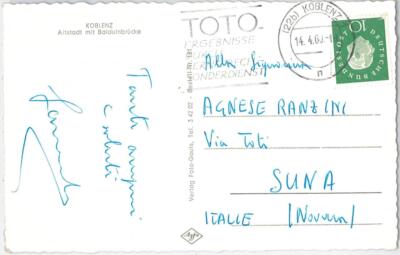 KOBLENZ
Altstadt mit Balduinbrücke
Tanti auguri
e saluti
Verlag Foto-Gauls, Tel. 3 42 02
TOTO
ERGEBNISSE
SONDERDIENST
(22b) KOBLENZ
14. 4. 60
n
DEUTSCHE BUNDESPOST
10
Alla Signorina
AGNESE RANZINI
Via Toti
SUNA
ITALIE (Novara)
Agfa